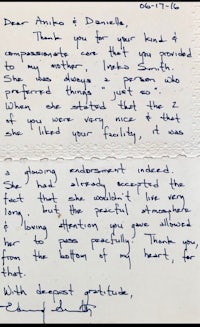 06-17-16
Dear Aniko & Danielle,
Thank you for your kind &
compassionate care that you provided
to my mother, Ineko Smith.
She was always a person who
preferred things "just so".
When she stated that the 2
of you were very nice & that
she liked your facility, it was
a glowing endorsment indeed.
She had already accepted the
fact that she wouldn't live very
long, but the peaceful atmosphere
& loving attention you gave allowed
her to pass peacefully. Thank you,
from the bottom of my heart, for
that.
With deepest gratitude,